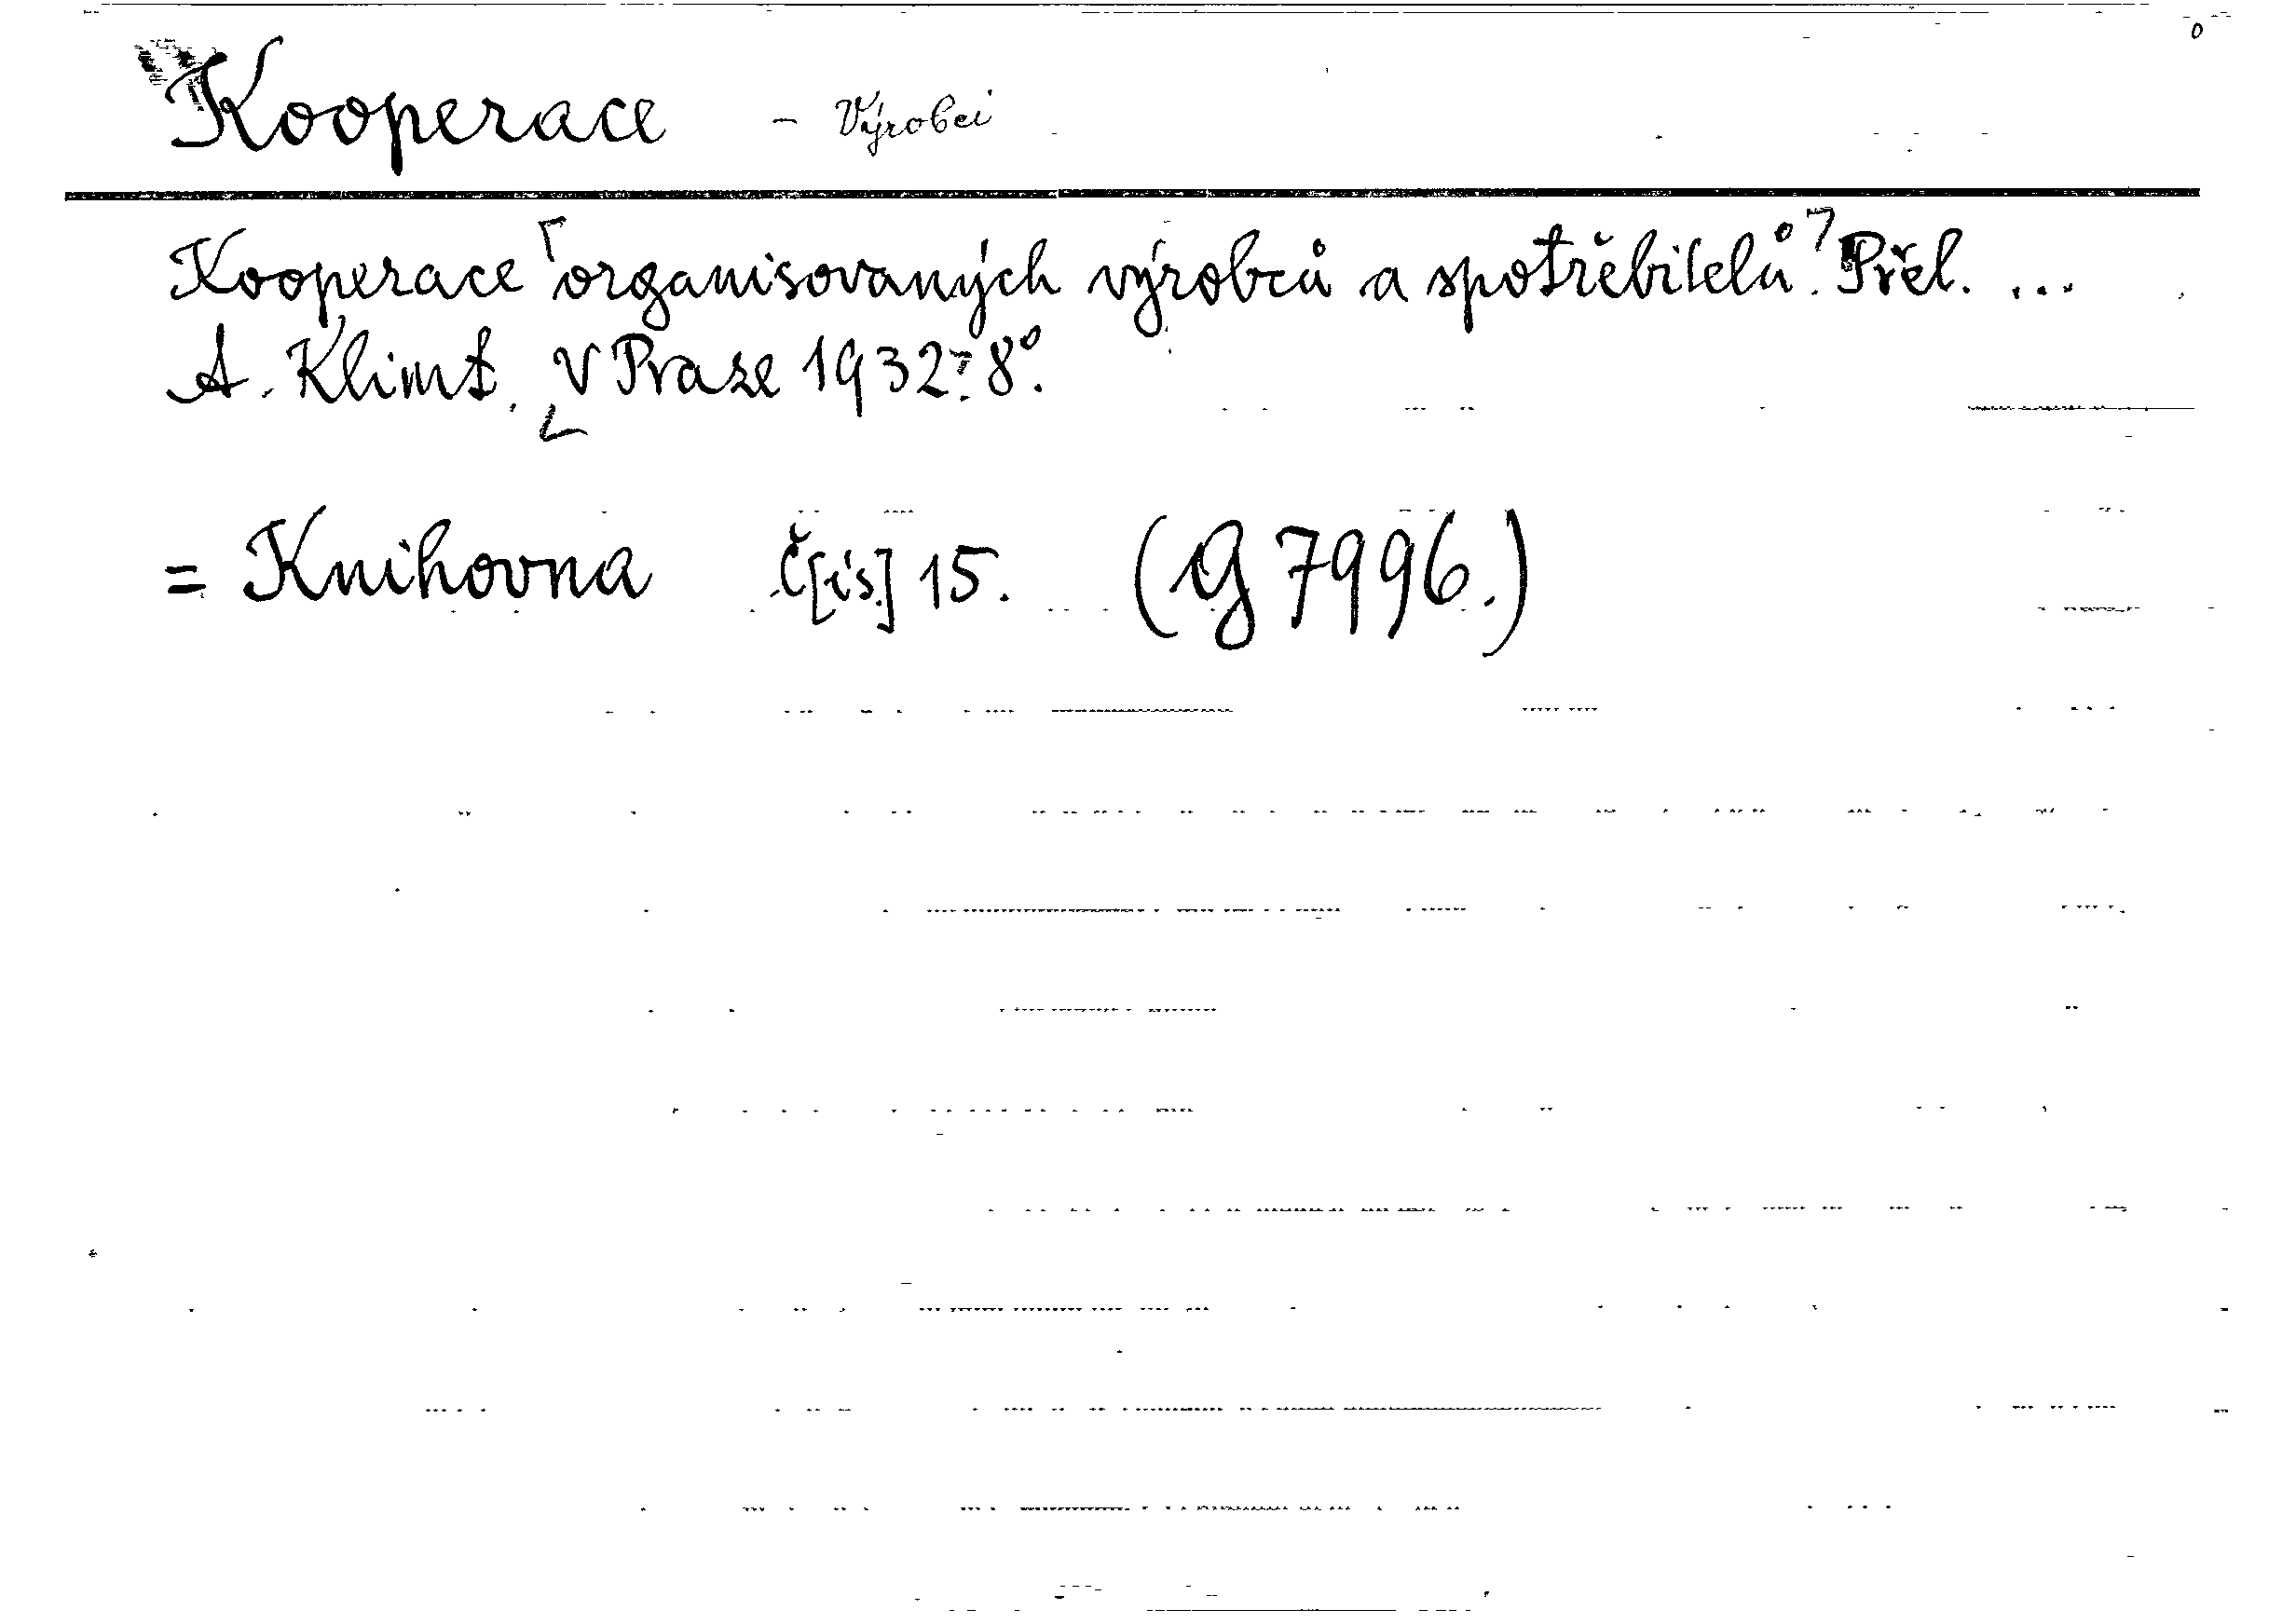 Kooperace - Výrobci
Kooperace ⌈organisovaných výrobců a spotřebitelů.⌉ Přel. ...
A. Klimt. ⌊V Praze 1932.⌉ 8°.
= Knihovna Č[ís.] 15. (G 7996.)